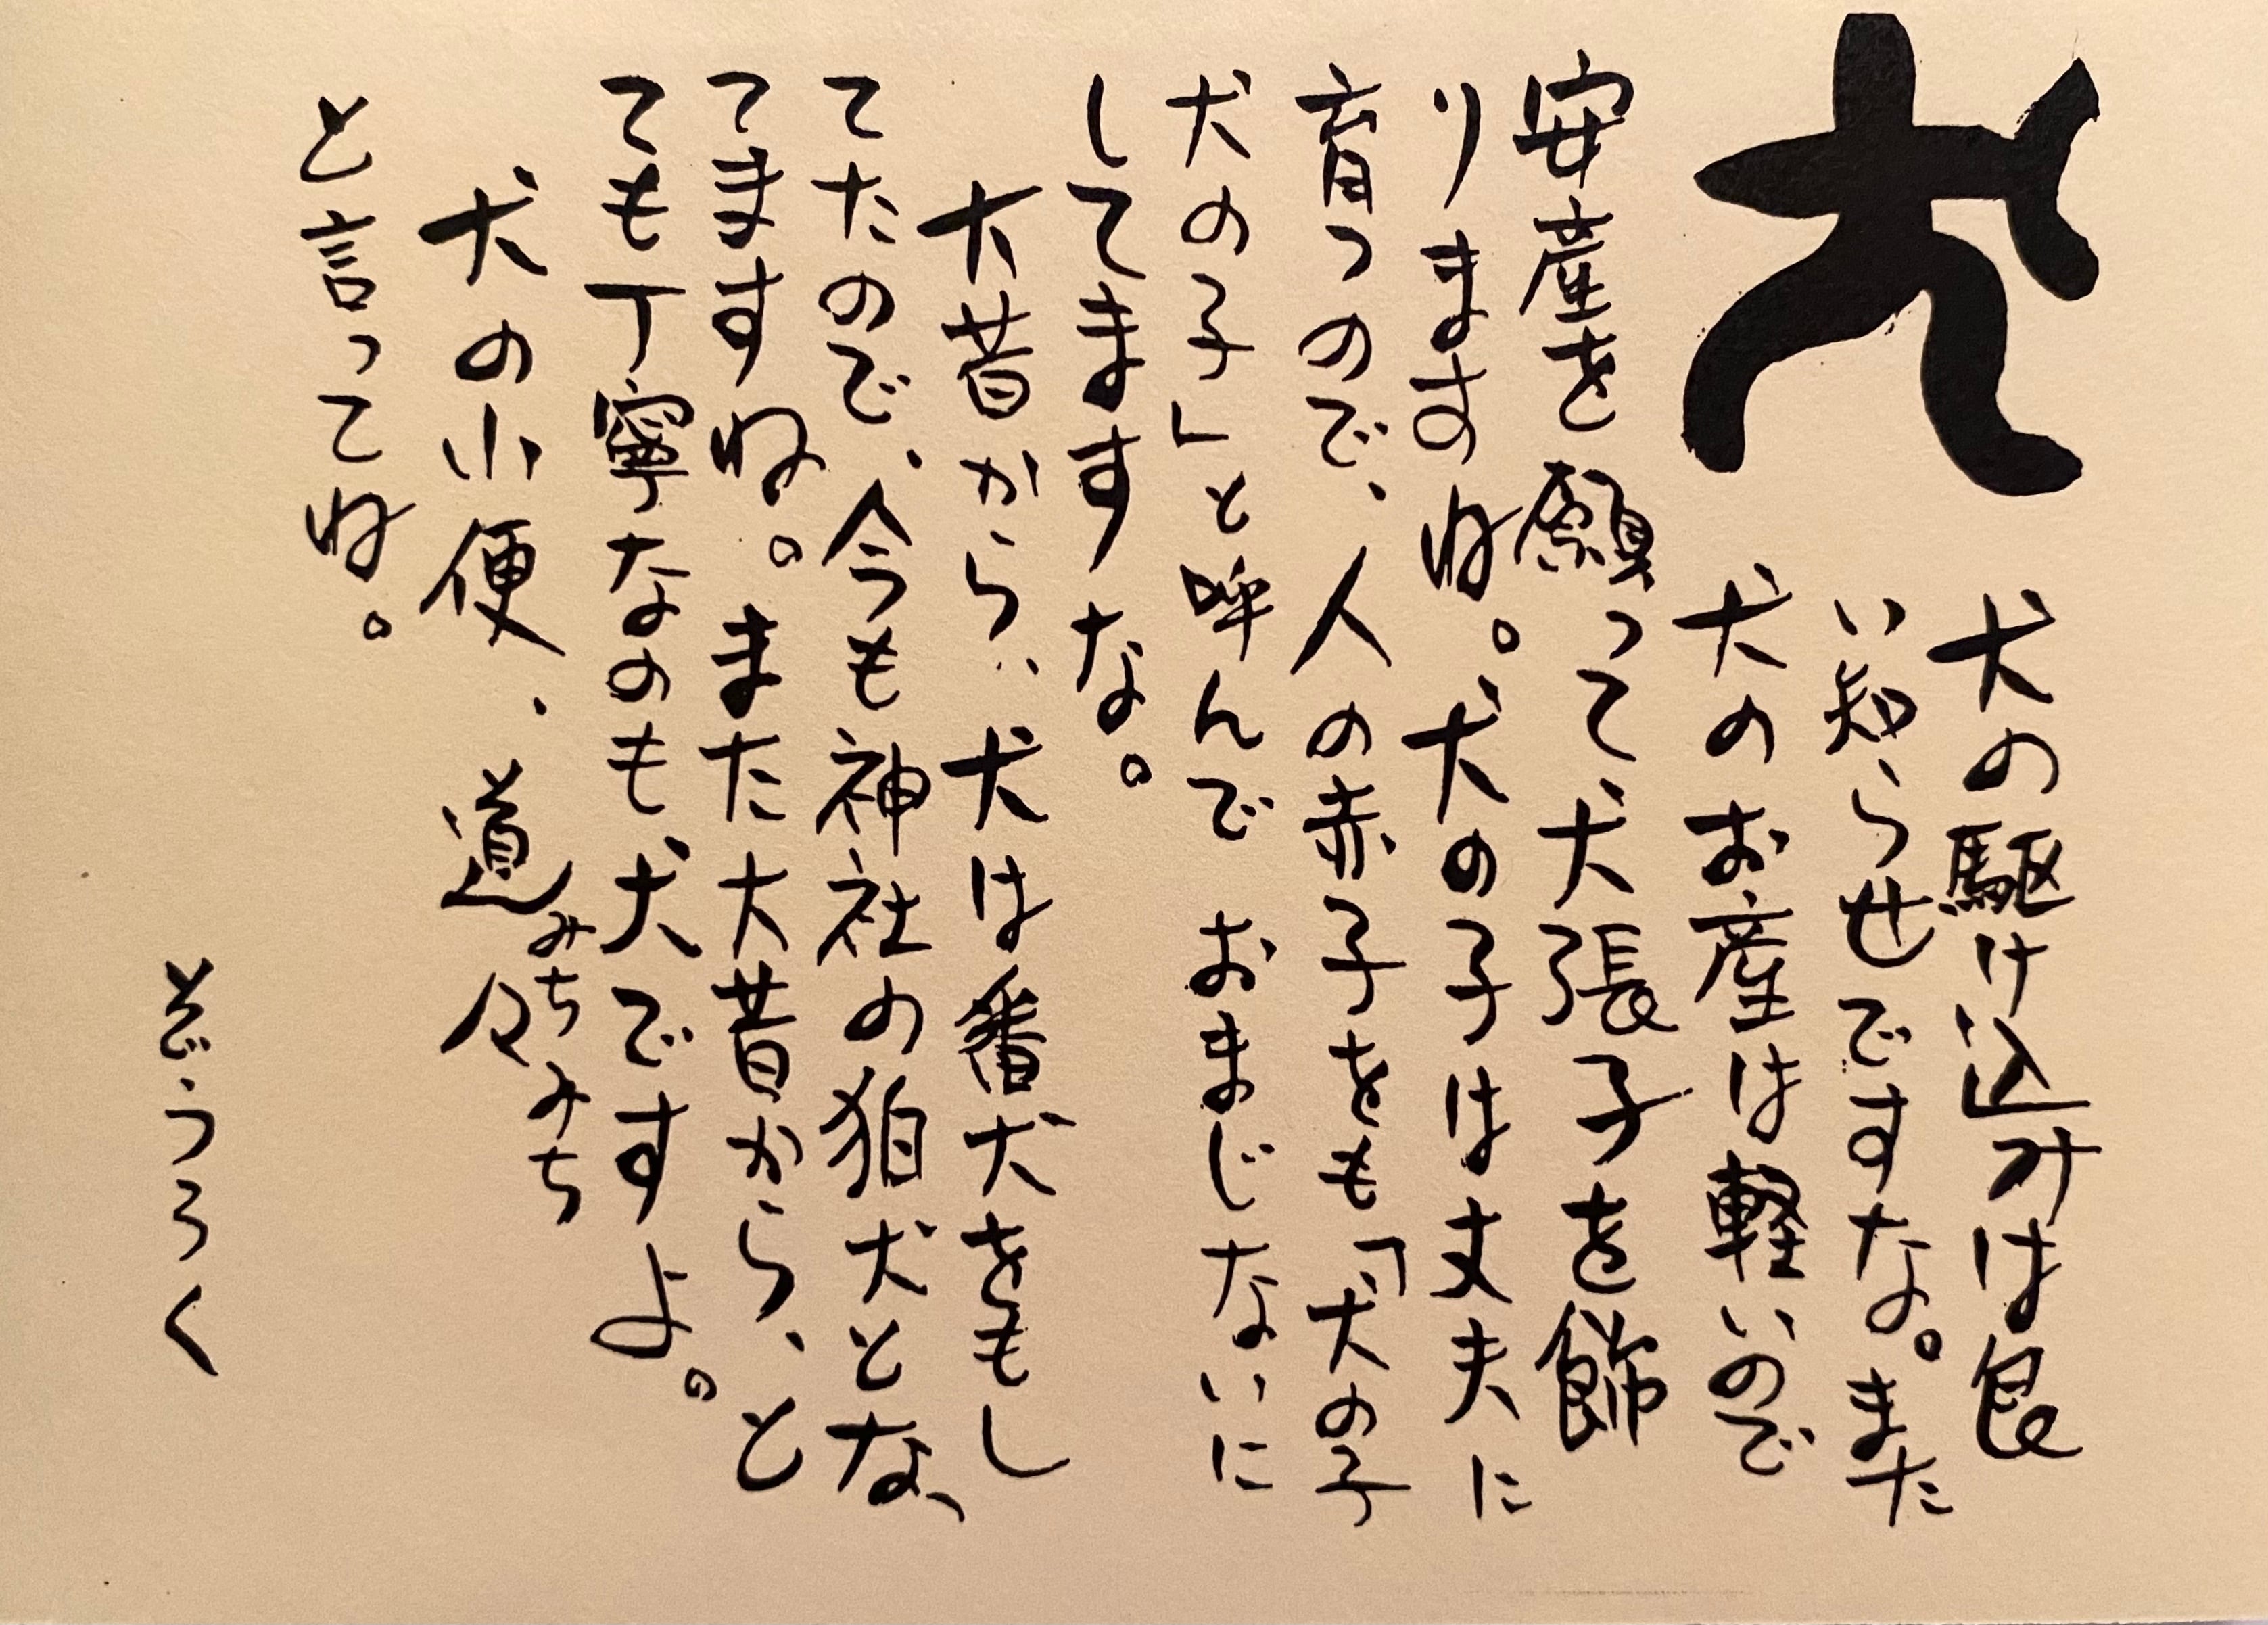 犬
犬の駆け込みは良
い知らせですな。また
犬のお産は軽いので
安産を願って犬張子を飾
りますね。犬の子は丈夫に
育つので、人の赤子をも「犬の子
犬の子」と呼んでおまじないに
してますな。
大昔から、犬は番犬をもし
てたので、今も神社の狛犬とな、
てますね。また大昔から、と
ても丁寧なのも犬ですよ。
犬の小便、道々みちみち
と言ってね。
ぞうろく